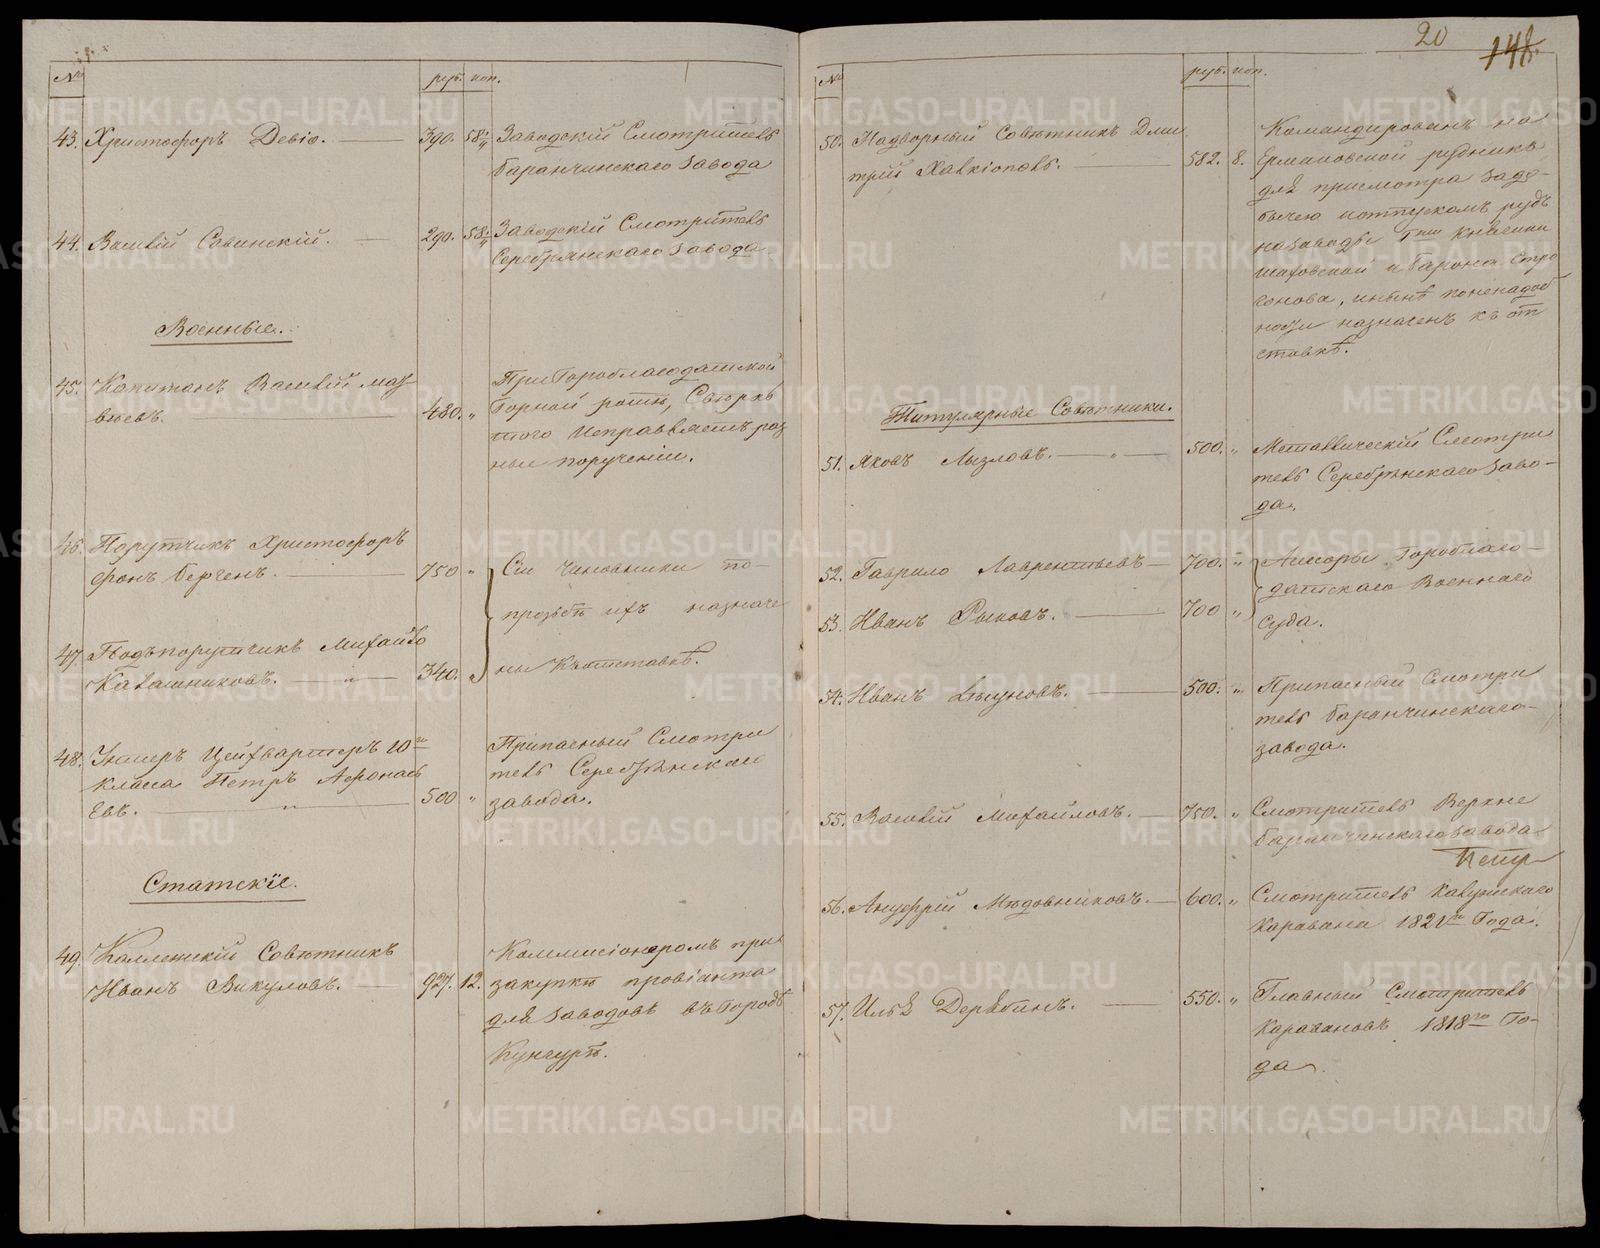 № руб. коп.
43. Христофоръ Девіо. 390. 58 1/4 Заводскій Смотритель
Баранчинскаго завода
44. Василій Савинскій. 290. 58 1/4 Заводскій Смотритель
Серебрянскаго завода
Военные.
45. Капитанъ Василій Мат-
вѣевъ. 480. „
При Гороблагодатской
Горной ротѣ, Сверхъ
того исправляетъ раз
ные порученіи.
46. Порутчикъ Христофоръ
фонъ Бергенъ. 750 „
47. Подъпорутчикъ Михайло
Калашниковъ. „ 340. „
Сіи Чиновники по-
прозьбѣ ихъ назначе
ны къ отставкѣ.
48. Унтеръ Цейхвартеръ 10го
класа Петръ Афонась
евъ. „ 500 „
Припасный Смотри
тель Серебрянскаго
завода.
Статскіе.
49. Коллежскій Совѣтникъ
Иванъ Викуловъ. 927. 12.
Коммисіонеромъ при
закупкѣ провіанта
для заводовъ въ Городѣ
Кунгурѣ.
20
148.
№ руб. коп.
50. Надворный Совѣтникъ Дми
трій Хавкіоповъ. 582. 8.
Командированъ на
Ермаковской рудникъ
для присмотра за до-
бычею и отпускомъ рудъ
на заводы Гжи Княгини
Шаховской и Барона Стро
гонова, и нынѣ по ненадоб
ности назначенъ къ от
ставкѣ.
Титулярные Совѣтники.
51. Яковъ Лызловъ. „ 500. „ Металлическій Смотри
тель Серебрянскаго заво-
да.
52. Гаврило Лаврентьевъ 700. „
53. Иванъ Рыковъ. 700 „
Асесоры Гороблаго-
датскаго Военнаго
суда.
54. Иванъ 500. „ Припасный Смотри
тель Баранчинскаго
завода.
55. Василій Михайловъ. 750. „ Смотритель Верхне
баранчинскаго завода
56. Ануфрій Мѣдовниковъ. 600. „ Смотритель
Каравана 1821го Года.
57. Илья Дерябинъ. 550. „ Главный Смотритель
Каравановъ 1818го Го-
да.